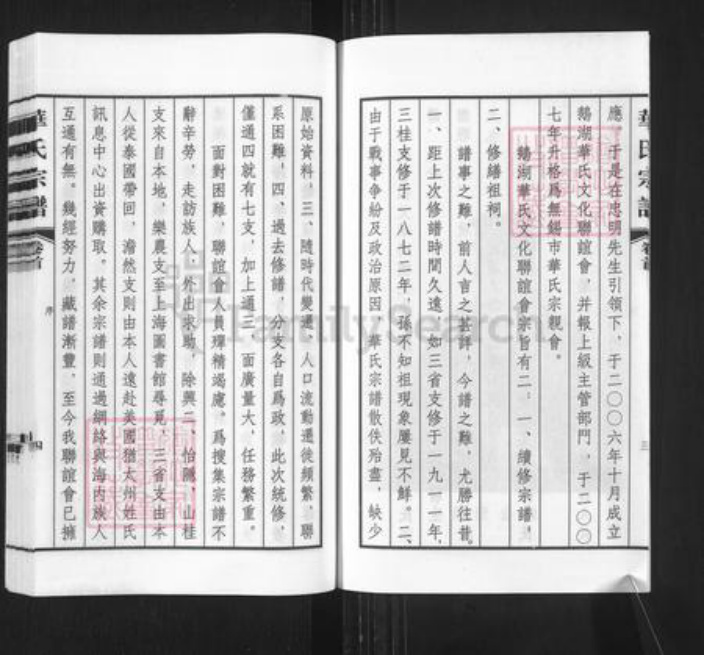 應，于是在忠明先生引領下，于二〇〇六年十月成立
鵝湖華氏文化聯誼會，并報上級主管部門，于二〇〇
七年升格爲無錫市華氏宗親會。
鵝湖華氏文化聯誼會宗旨有二：一、續修宗譜，
二、修繕祖祠。
譜事之難，前人言之甚詳，今譜之難，尤勝往昔。
一、距上次修譜時間久遠，如三省支修于一九一一年，
三桂支修于一八七二年，孫不知祖現象屢見不鮮。二、
由于戰事争紛及政治原因，華氏宗譜散佚殆盡，缺少
華氏宗譜 卷首
三
原始資料，三、隨時代變通，人口流動遷徙頻繁，聯
系困難，四、過去修譜，分支各自爲政，此次統修，
僅通四就有七支，加上通三，面廣量大，任務繁重。
面對困難，聯誼會人員殫精竭慮。爲搜集宗譜不
辭辛勞，走訪族人，外出求助，除興二、怡隱、山桂
支來自本地，樂農支至上海圖書館尋覓，三省支由本
人從泰國帶回，澹然支則由本人遠赴美國猶太州姓氏
訊息中心出資購取。其余宗譜則通過網絡與海内族人
互通有無。幾經努力，藏譜漸豐，至今我聯誼會已擁
華氏宗譜 卷首
序
四
FamilySearch